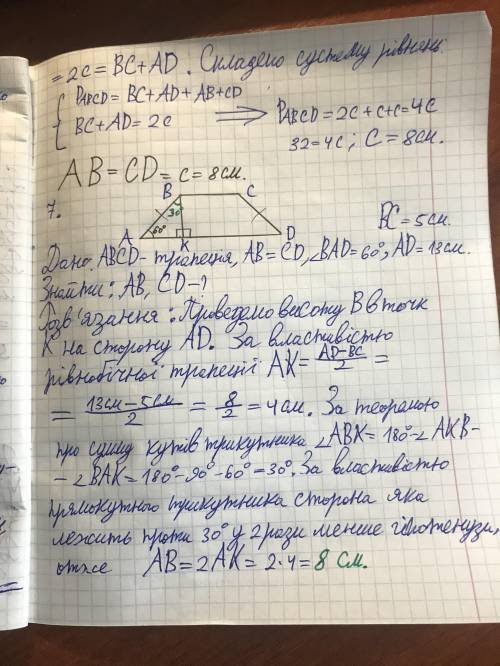 = 2c = BC + AD. Складено систему рівнянь
{ PABCD = BC + AD + AB + CD
BC + AD = 2c
⟹ PABCD = 2c + c + c = 4c
32 = 4c ; c = 8см.
AB = CD = c = 8см.
7.
B
C
30
A
60°
K
D
BC = 5см.
Дано: ABCD - трапеція, AB = CD, ∠BAD = 60°, AD = 13см.
Знайти: AB, CD - ?
Розв'язання: Проведемо висоту В в точк
К на сторону AD. За властивістю
рівнобічної трапеції AK = (AD-BC)/2 =
= (13см - 5см)/2 = 8/2 = 4см. За теоремою
про суму кутів трикутника ∠ABK = 180° - ∠AKB -
- ∠BAK = 180° - 90° - 60° = 30°. За властивістю
прямокутного трикутника сторона яка
лежить проти 30° у 2 рази менше гіпотенузи,
отже AB = 2AK = 2·4 = 8 см.